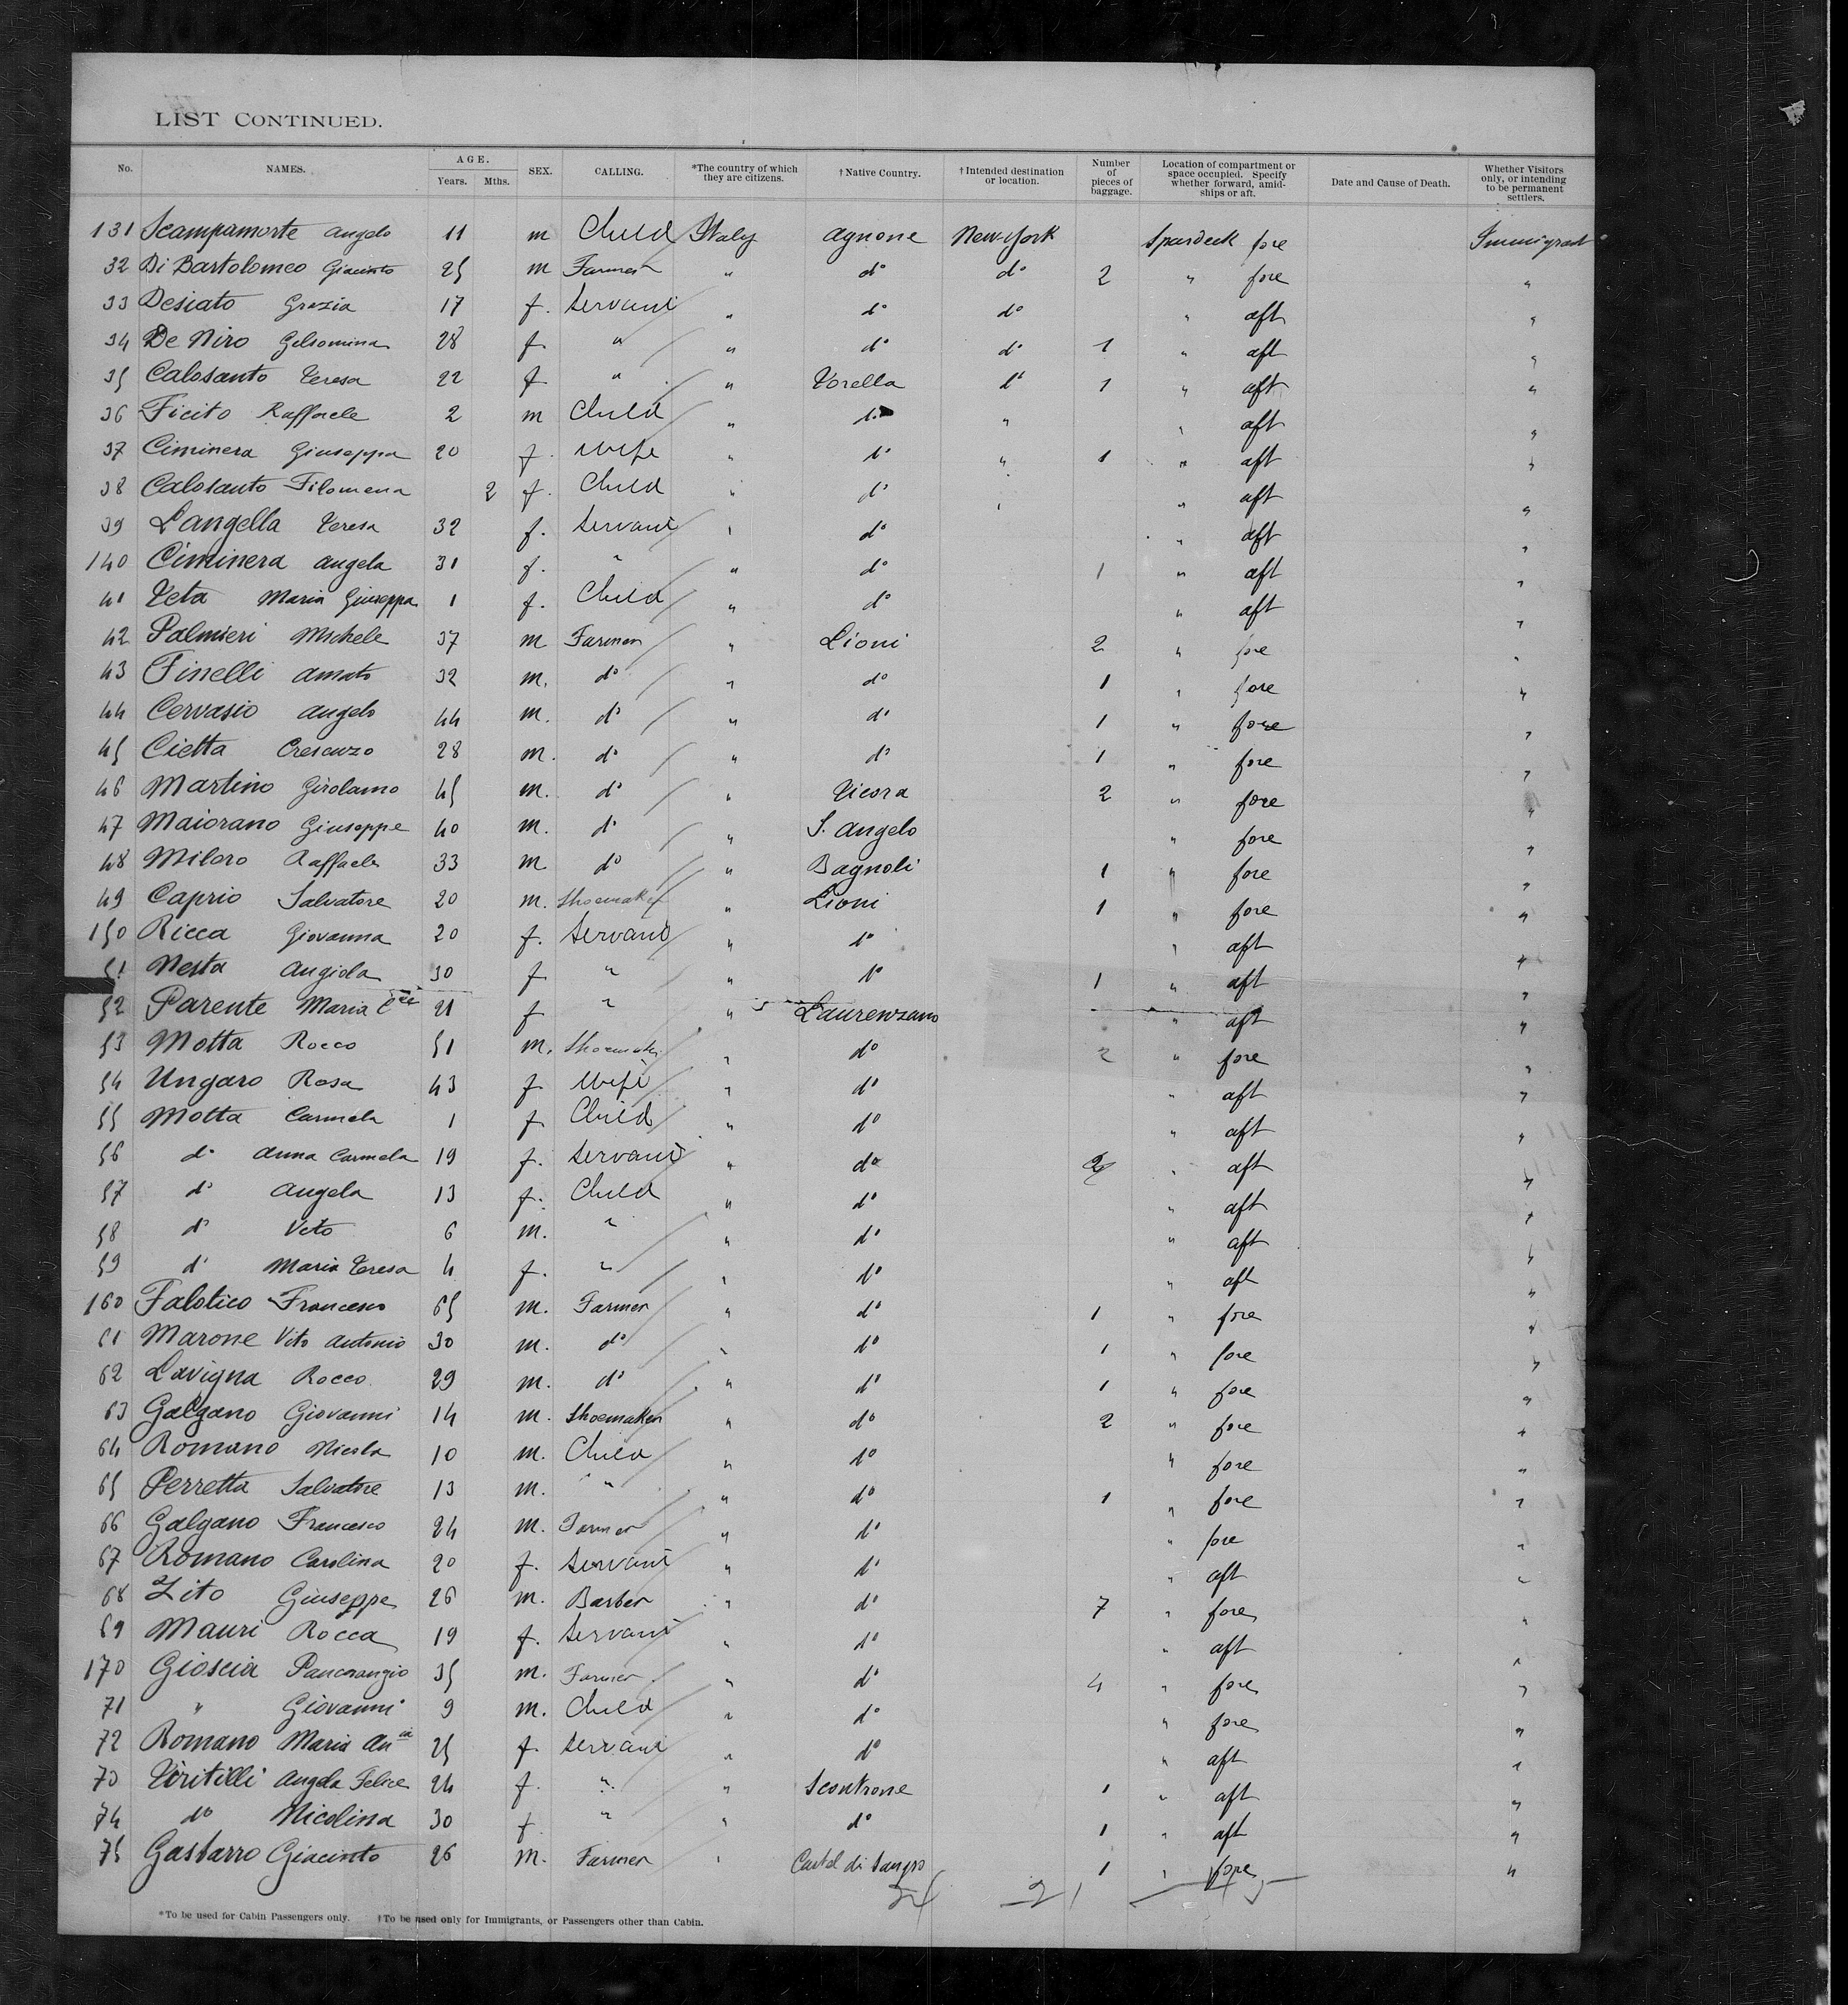 LIST CONTINUED.
No. NAMES. AGE. Years. Mths. SEX. CALLING. *The country of which they are citizens. †Native Country. †Intended destination or location. Number of pieces of baggage. Location of compartment or space occupied. Specify whether forward, amidships or aft. Date and Cause of Death. Whether Visitors only, or intending to be permanent settlers.
131 Scampamorte Angelo 11 m Child Italy Agnone New-York Spardeck fore Immigrant
32 Di Bartolomeo Giacinto 25 m Farmer " do do 2 " fore "
33 Desiato Grazia 17 f. Servant " do do " aft "
34 De Niro Gelsomina 28 f. " " do do 1 " aft "
35 Calosanto Teresa 22 f. " " Torella do 1 " aft "
36 Ficito Raffaele 2 m Child " do " " aft "
37 Ciminera Giuseppa 20 f. Wife " do " 1 " aft "
38 Calosanto Filomena 2 f. Child " do " " aft "
39 Langella Teresa 32 f. Servant " do " aft "
140 Ciminera Angela 31 f. " " do 1 " aft "
41 Teta Maria Giuseppa 1 f. Child " do " aft "
42 Palmieri Michele 37 m Farmer " Lioni 2 " fore "
43 Finelli Amato 32 m. do " do 1 " fore "
44 Cervasio Angelo 44 m. do " do 1 " fore "
45 Cietta Crescenzo 28 m. do " do 1 " fore "
46 Martino Girolamo 45 m. do " 2 " fore "
47 Maiorano Giuseppe 40 m. do " S. Angelo " fore "
48 Miloro Raffaele 33 m do " Bagnoli 1 " fore "
49 Caprio Salvatore 20 m. Shoemaker " Lioni 1 " fore "
150 Ricca Giovanna 20 f. Servant " do " aft "
51 Nesta Angiola 30 f " " do 1 " aft "
52 Parente Maria 21 f " " Laurenzano " aft "
53 Motta Rocco 51 m. Shoemaker " do 2 " fore "
54 Ungaro Rosa 43 f Wife " do " aft "
55 Motta Carmela 1 f Child " do " aft "
56 do Anna Carmela 19 f. Servant " do 2 " aft "
57 do Angela 13 f. Child " do " aft "
58 do Vito 6 m. " " do " aft "
59 do Maria Teresa 4 f. " " do " aft "
160 Falotico Francesco 65 m. Farmer " do 1 " fore "
61 Marone Vito Antonio 30 m. do " do 1 " fore "
62 Lavigna Rocco 29 m. do " do 1 " fore "
63 Galgano Giovanni 14 m. Shoemaker " do 2 " fore "
64 Romano Nicola 10 m. Child " do " fore "
65 Perretta Salvatore 13 m. " " do 1 " fore "
66 Galgano Francesco 24 m. Farmer " do " fore "
67 Romano Carolina 20 f. Servant " do " aft "
68 Zito Giuseppe 26 m. Barber " do 7 " fore "
69 Mauri Rocca 19 f. Servant " do " aft "
170 Gioscia Pancrazio 35 m. Farmer " do 4 " fore "
71 " Giovanni 9 m. Child " do " fore "
72 Romano Maria 25 f. Servant " do " aft "
73 Viritilli Angela Felice 24 f. " " Scontrone 1 " aft "
74 do Nicolina 30 f " " do 1 " aft "
75 Gastarro Giacinto 26 m. Farmer " Castel di Sangro 1 " fore "
*To be used for Cabin Passengers only. †To be used only for Immigrants, or Passengers other than Cabin.